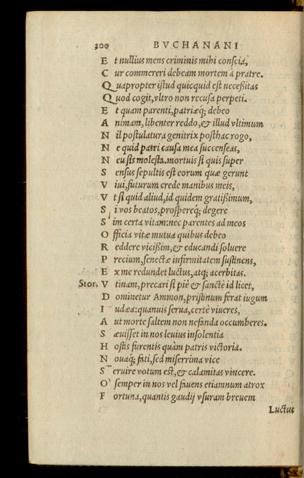 200 BVCHANANI
E t nullius mens criminis mihi conscia,
C ur commereri debeam mortem à patre.
Q uapropter istud quicquid est necessitas
Q uod cogit, vltro non recuso perpeti.
E t quam parenti, patriæq; debeo
A nimam, libenter reddo, & illud vltimum
N il postulatura genitrix posthac rogo,
N e quid patri causa mea succenseas,
N eu sis molesta. mortuis si quis super
S ensus sepultis est eorum quæ gerunt
V iui, futurum crede manibus meis,
V t si quid aliud, id quidem gratissimum,
S i vos beatos, prosperéq; degere
S im certa vitam: nec parentes ad meos
O fficia vitæ mutua quibus debeo
R eddere vicissim, & educandi soluere
P recium, senectæ infirmitatem sustinens,
E x me redundet luctus, atq; acerbitas.
Stor. V tinam, precari si piè & sanctè id licet,
D ominetur Ammon, pristinum ferat iugum
I udæa: quanuis serua, certè viueres,
A ut morte saltem non nefanda occumberes.
S æuisset in nos leuius insolentia
H ostis furentis quàm patris victoria.
N ouaq; siti, sed miserrima vice
S eruire votum est, & calamitas vincere.
O semper in nos vel fiuens etiamnum atrox
F ortuna, quantis gaudij vsuram breuem
Luctus